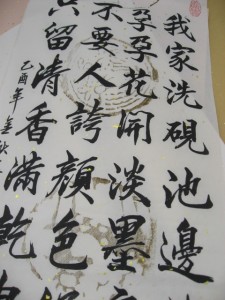 我家洗硯池邊
朵朵花開淡墨
不要人誇顏色
只留清香滿乾
乙酉年金秋